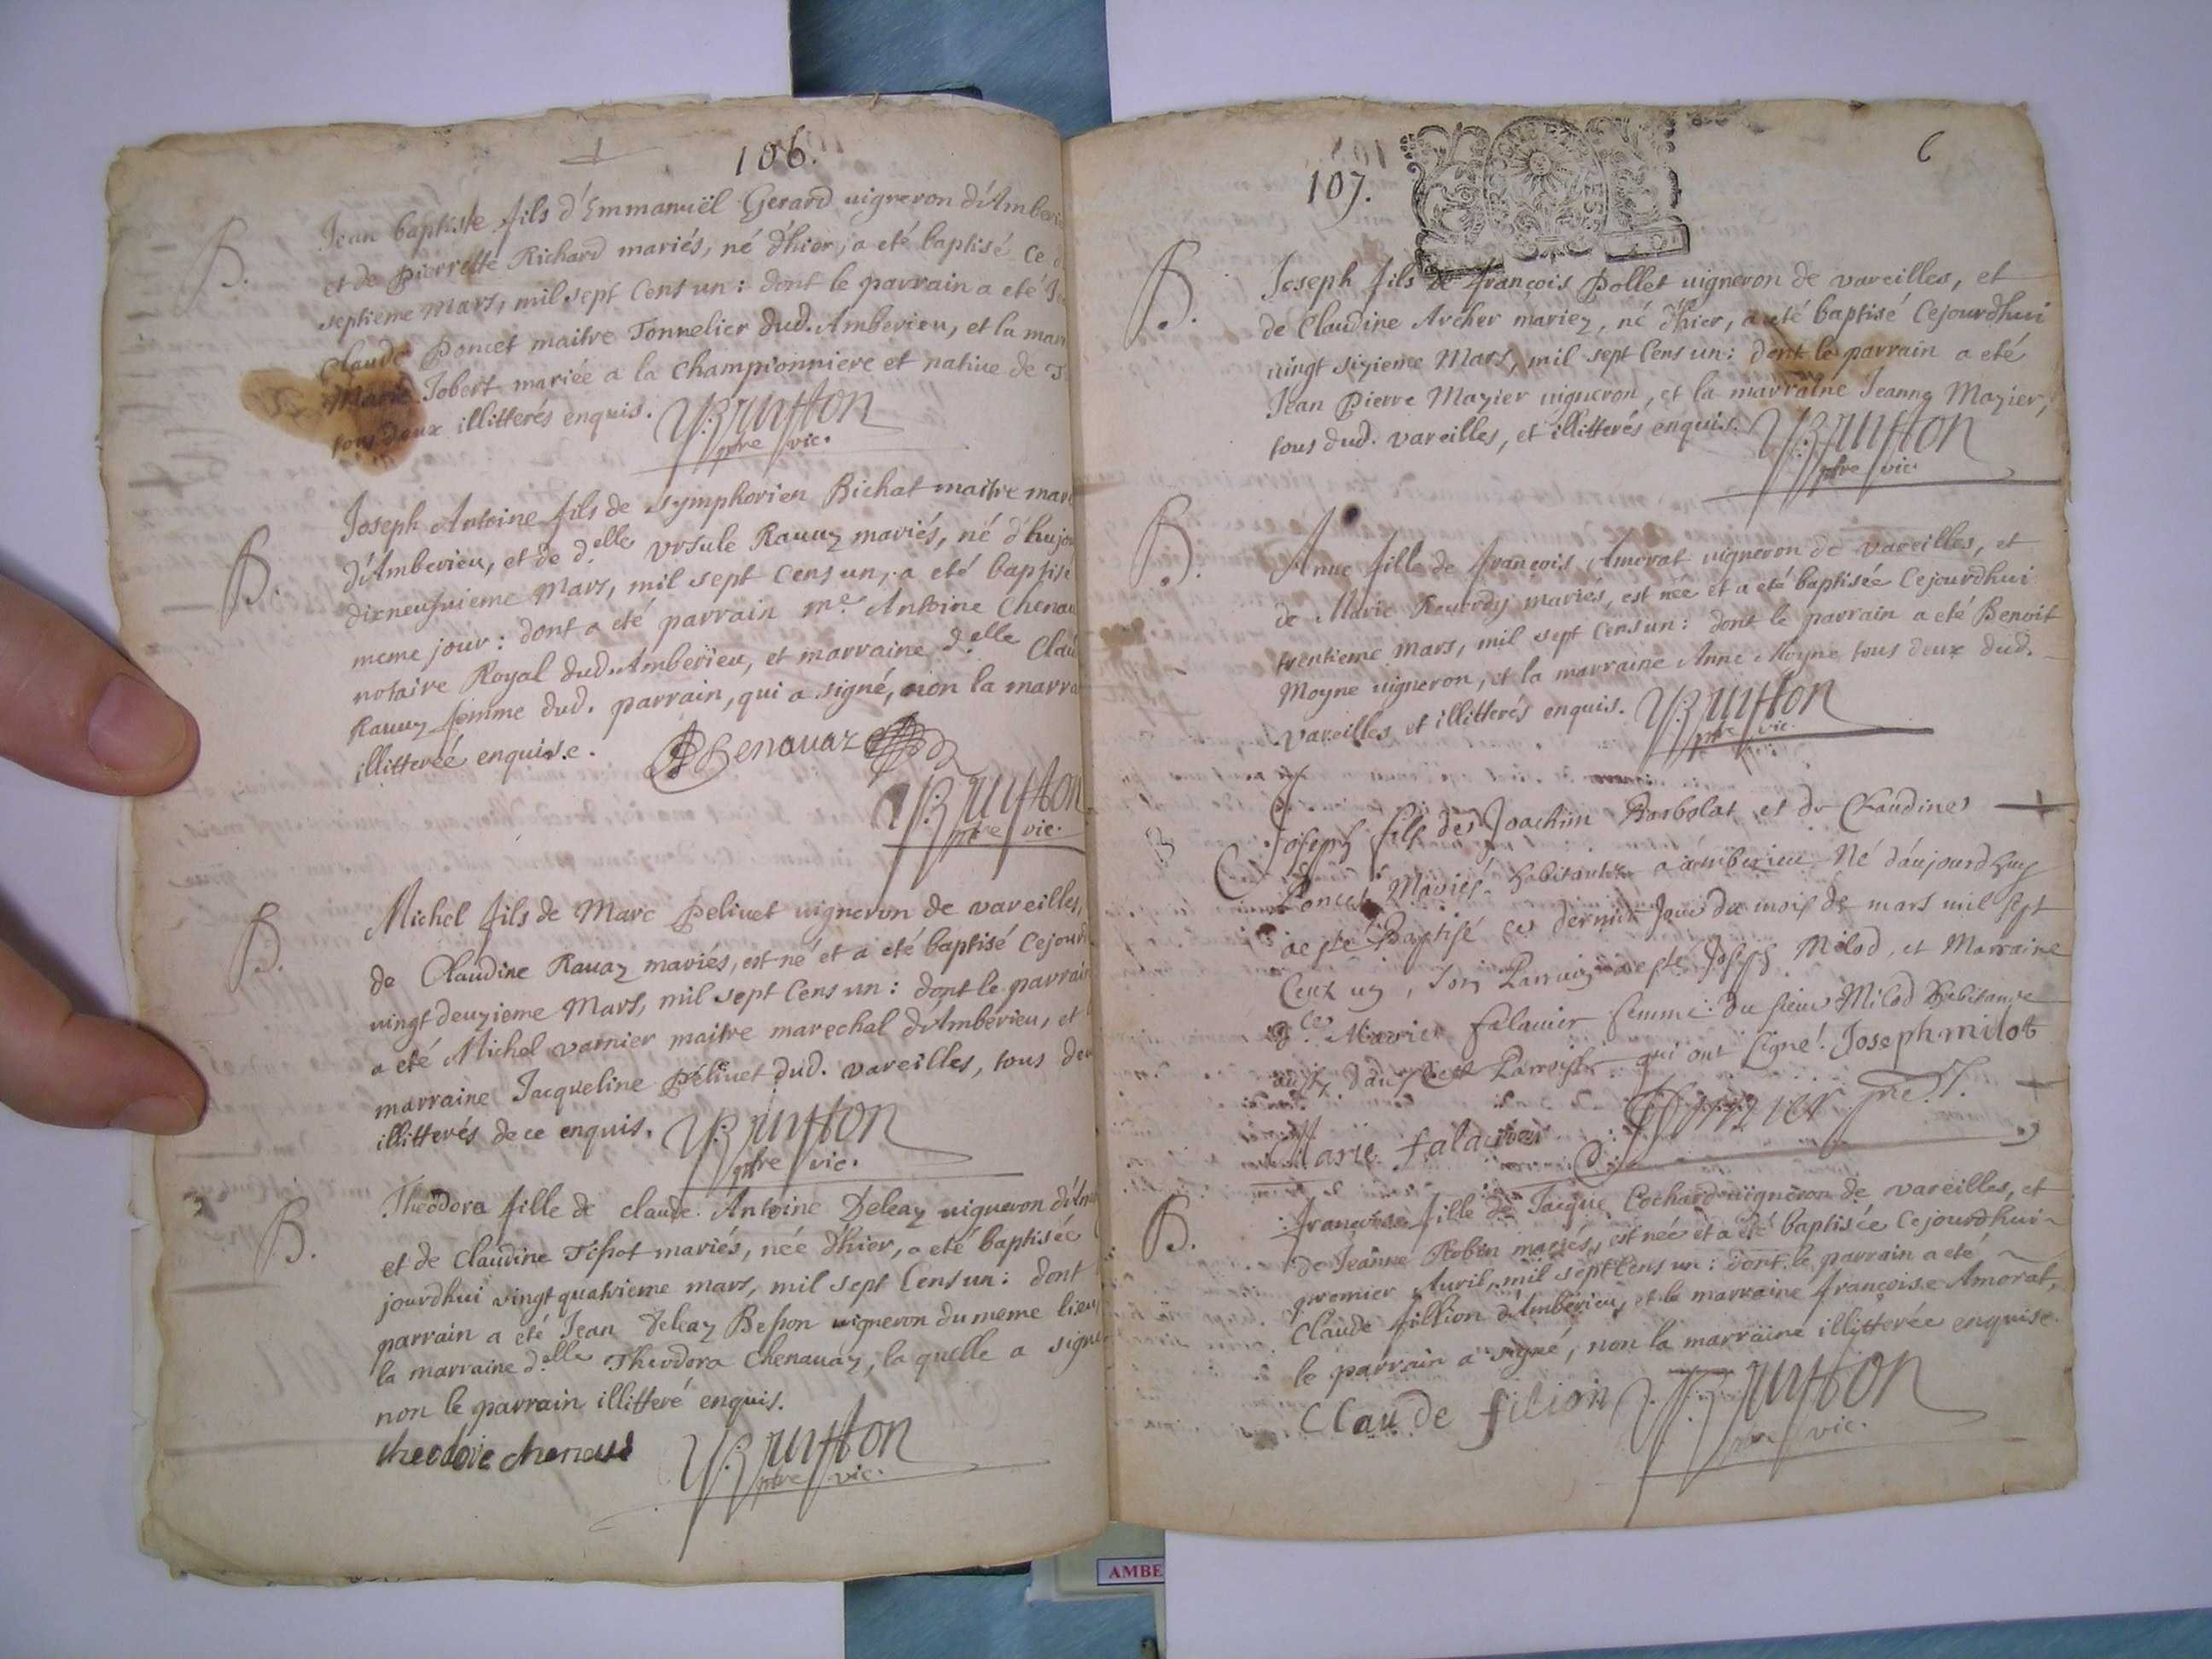 106.
B.
Jean baptiste fils d'Emmanuël Gerard uigneron d'Amberi
et de pierrette Richard mariés, né d'hier, a eté baptisé ce
septieme mars, mil sept Cens un: dont le parrain a eté
Claude Poncet maitre Tonnelier dud. Amberieu, et la marr
Marie Jobert mariée a la Championniere et natiue de
tous deux illitterés enquis.
pbre vic.
B.
Joseph Antoine fils de symphorien Bichat maitre mare
d'Amberieu, et de d.elle Vrsule Rauuz mariés, né d'hujou
dixneufuieme mars, mil sept Cens un, a eté baptisé
meme jour: dont a eté parrain me. Antoine Chenau
notaire Royal dud. Amberieu, et marraine d.elle Clau
Rauuz femme dud. parrain, qui a signé, non la marra
illitterée enquise.
Chenauaz
pbre vic.
B.
Michel fils de Marc Peliuet uigneron de vareilles,
de Claudine Rauaz mariés, est né et a eté baptisé Cejourd
uingt deuzieme Mars, mil sept Cens un: dont le parrain
a eté Michel varnier maitre marechal d'Amberieu, et l
marraine Jacqueline Péliuet dud. vareilles, tous deu
illitterés de ce enquis.
pbre vic.
B.
Theodora fille de claude Antoine Deleaz uigneron d'Am
et de Claudine Tissot mariés, née d'hier, a eté baptisée
jourdhui vingt quatrieme mars, mil sept Cens un: dont
parrain a eté Jean Deleaz Besson uigneron du meme lieu
la marraine d.elle Theodora Chenauaz, la quelle a signé
non le parrain illitteré enquis.
theodore chenaué
pbre vic.
6
107.
B.
Joseph fils de françois Pollet uigneron de vareilles, et
de Claudine Archer mariez, né d'hier, a eté baptisé Cejourdhui
uingt sizieme Mars, mil sept Cens un: dont le parrain a eté
Jean Pierre Mazier uigneron, et la marraine Jeanne Mazier,
tous dud. vareilles, et illitterés enquis.
pbre vic.
B.
Anne fille de françois Amorat uigneron de vareilles, et
de Marie mariés, est née et a eté baptisée Cejourdhui
trentieme mars, mil sept Cens un: dont le parrain a eté Benoit
Moyne uigneron, et la marraine Anne Moyne tous deux dud.
vareilles et illitterés enquis.
pbre vic.
B
Joseph fils de Joachim Barbolat et de Claudine
Poncet Mariés habitants a amberieu Né d'aujourdhuy
a esté Baptisé ce dernier Jour du mois de mars mil sept
Cent un, son Parrain a esté Joseph Milod, et Marraine
Marie falauier femme du sieur Milod habitants
Parroisse qui ont signé. Joseph milot
Marie falauier
B.
françoise fille de Jacque Cochard uigneron de vareilles, et
de Jeanne Robin mariés, est née et a eté baptisée Cejourdhui
premier Auril, mil sept Cens un: dont le parrain a eté
Claude fillion d'Amberieu, et la marraine françoise Amorat,
le parrain a signé, non la marraine illitterée enquise.
Claude filion
pbre vic.
AMBE